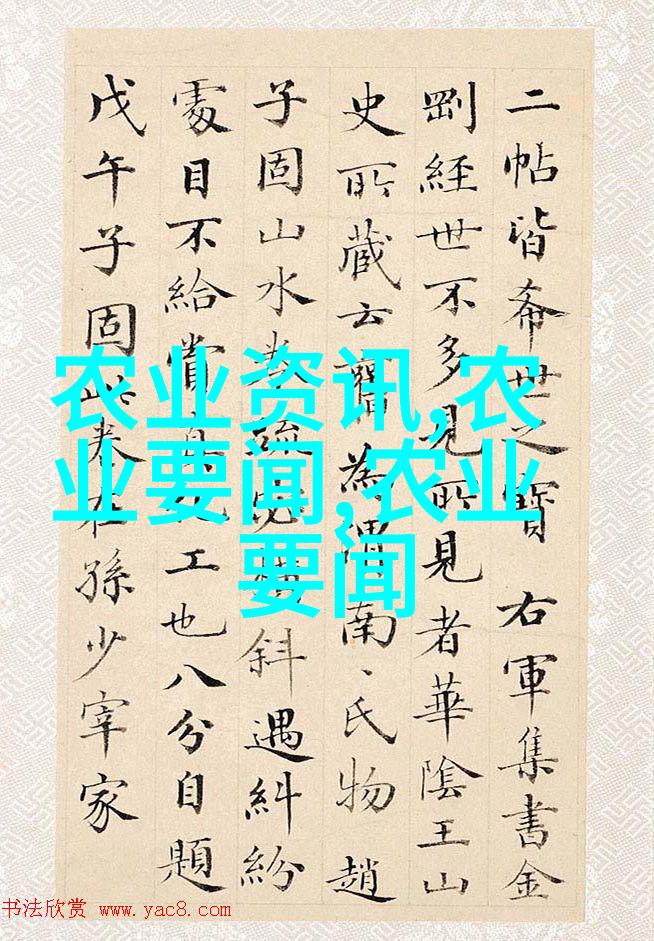 二帖皆希世之寶 右軍集書金
剛經世不多見所見者華陰王山
史所藏云 為 南、氏物趙
子固山水 疏 斜遇糾紛
處目不給賞 工也八分自題
戊午子固此卷在孫少宰家
农业资讯,农
业要闻,农业
要闻
书法欣赏 www.yac8.com